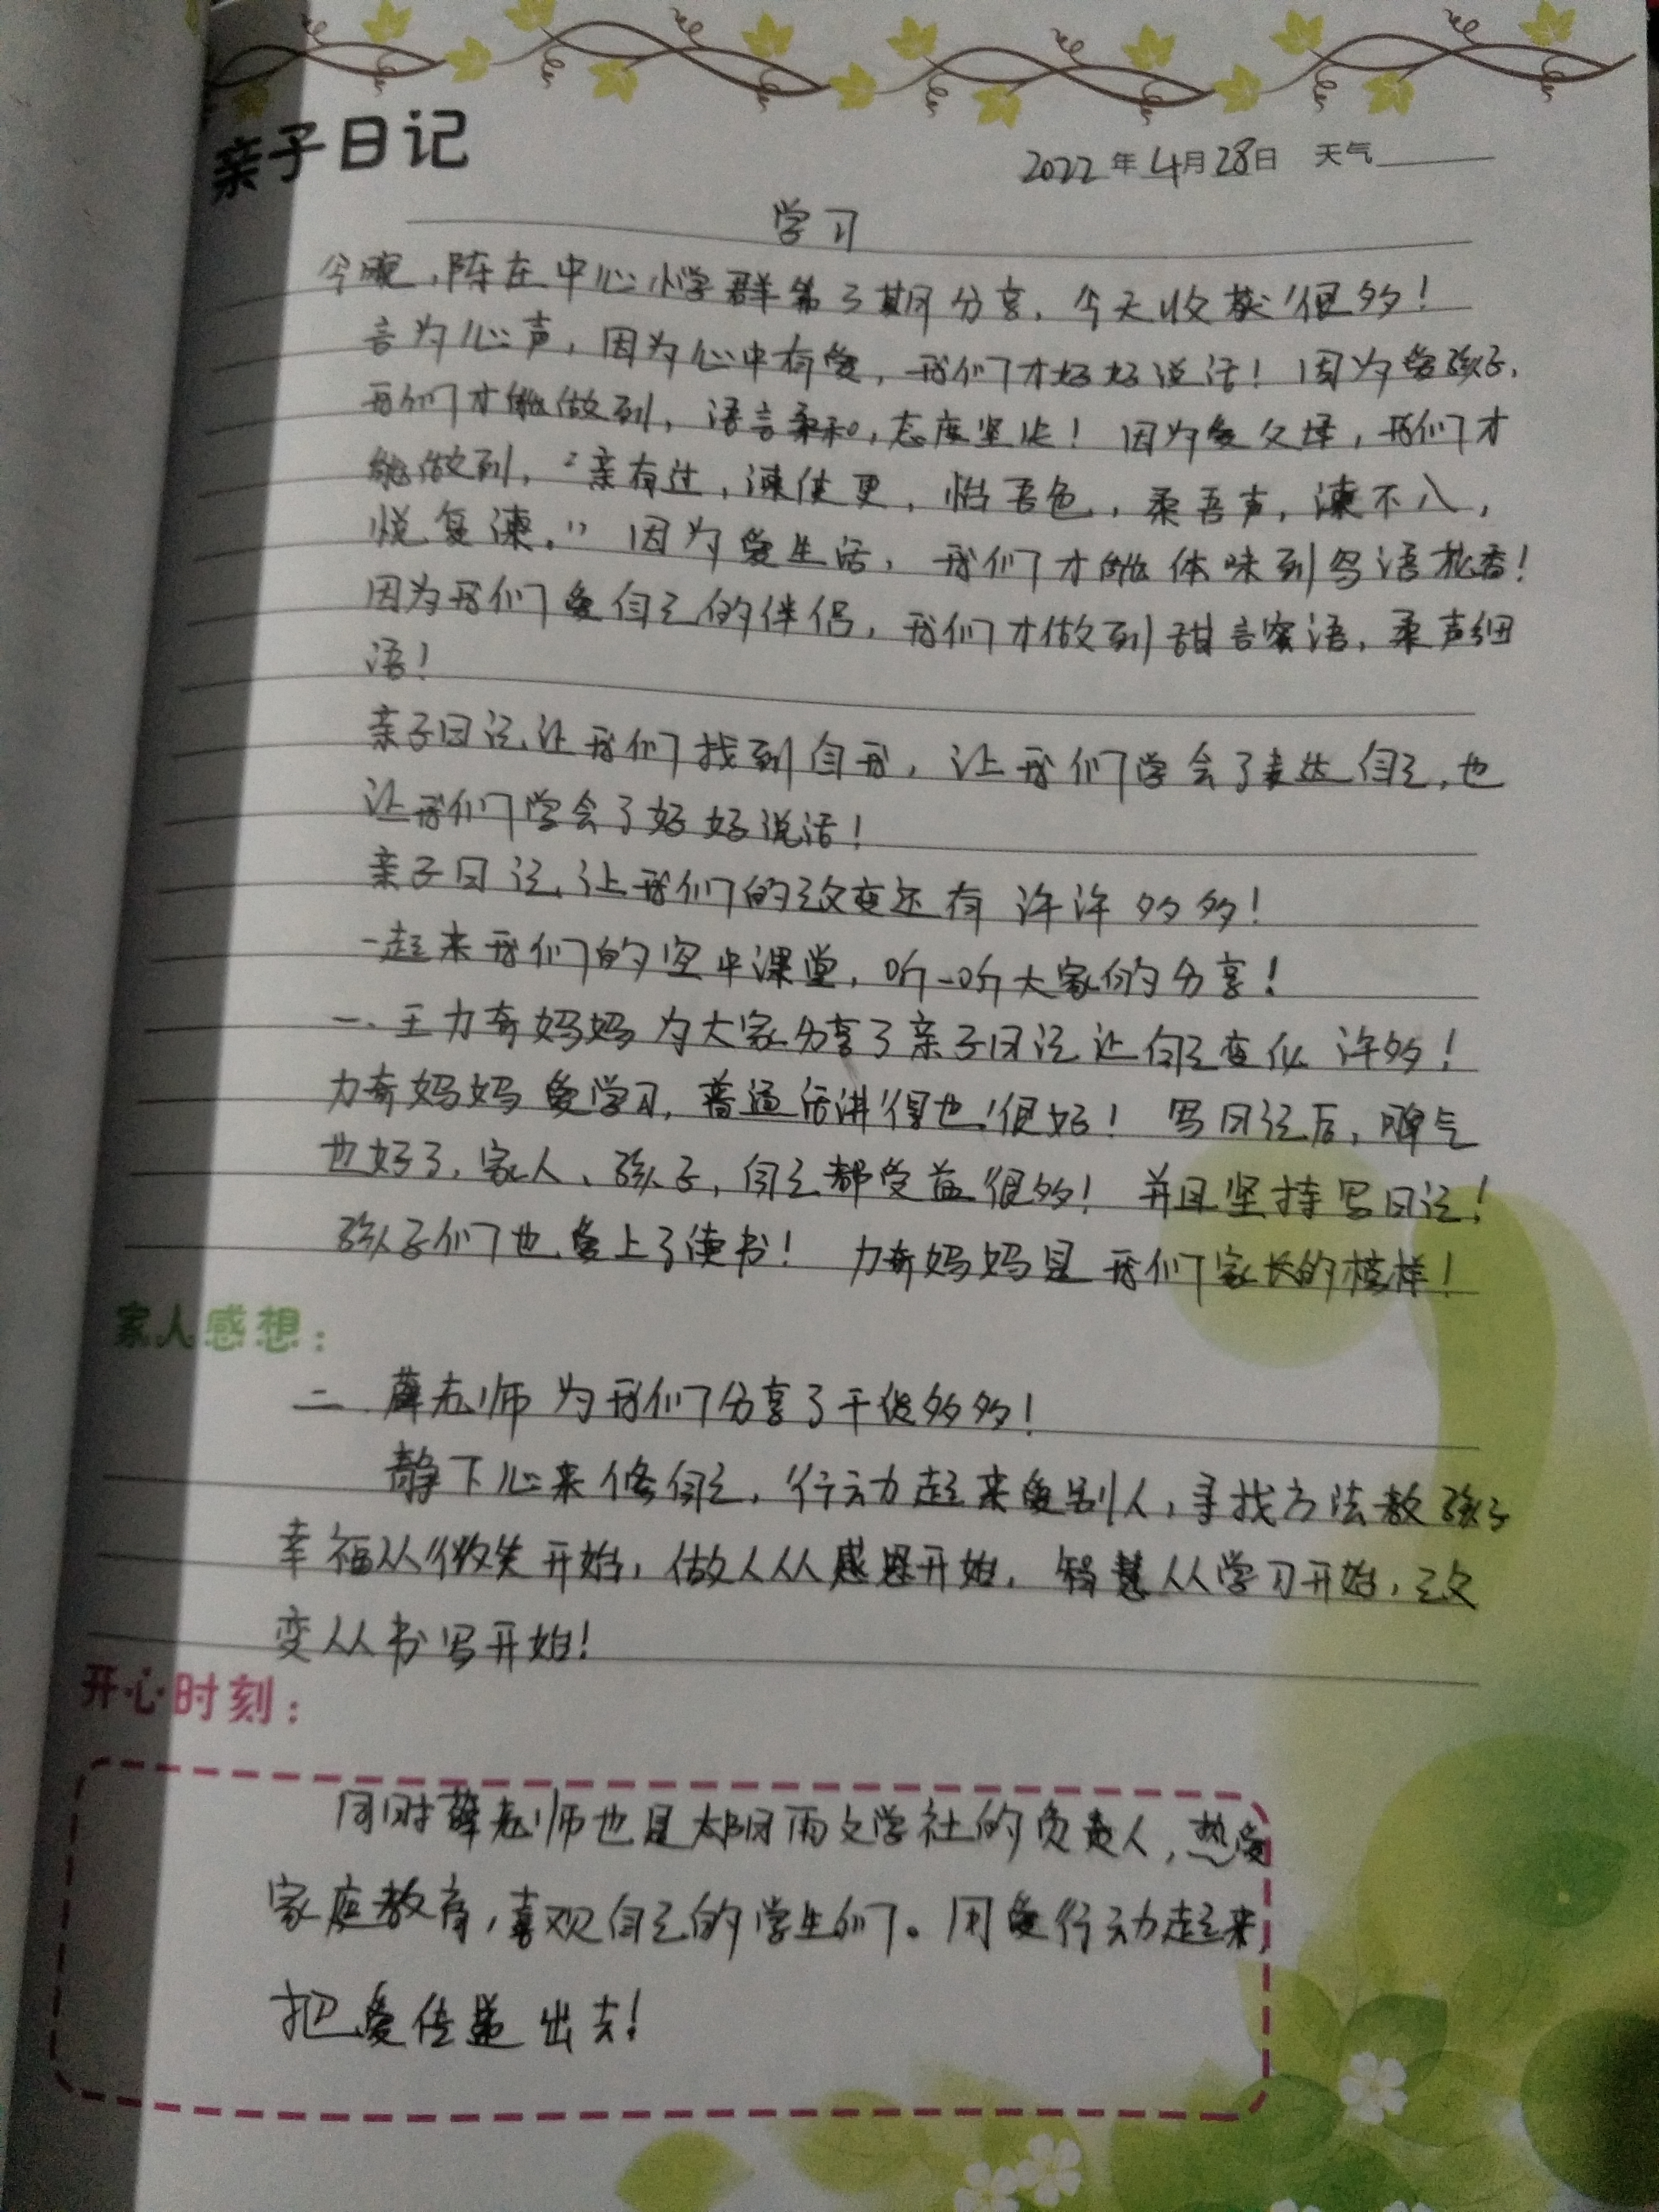 亲子日记
2022年4月28日 天气
学习
今晚,陈庄中心小学群第3期分享,今天收获很多!
言为心声,因为心中有爱,我们才好好说话!因为爱孩子,
我们才能做到,语言柔和,态度坚定!因为爱父母,我们才
能做到,“亲有过,谏使更,怡吾色,柔吾声,谏不入,
悦复谏。”因为爱生活,我们才能体味到鸟语花香!
因为我们爱自己的伴侣,我们才做到甜言蜜语,柔声细
语!
亲子日记,让我们找到自我,让我们学会了表达自己,也
让我们学会了好好说话!
亲子日记,让我们的改变还有许许多多!
一起来我们的空中课堂,听一听大家的分享!
一.王力奔妈妈为大家分享了亲子日记让自己变化许多!
力奔妈妈爱学习,普通话讲得也很好!写日记后,脾气
也好了,家人、孩子,自己都受益很多!并且坚持写日记!
孩子们也爱上了读书!力奔妈妈是我们家长的榜样!
家人感想:
二.薛老师为我们分享了干货多多!
静下心来修自己,行动起来爱别人,寻找方法教孩子
幸福从微笑开始,做人从感恩开始,智慧从学习开始,改
变从书写开始!
开心时刻:
同时薛老师也是太阳雨文学社的负责人,热爱
家庭教育,喜欢自己的学生们。用爱行动起来,
把爱传递出去!